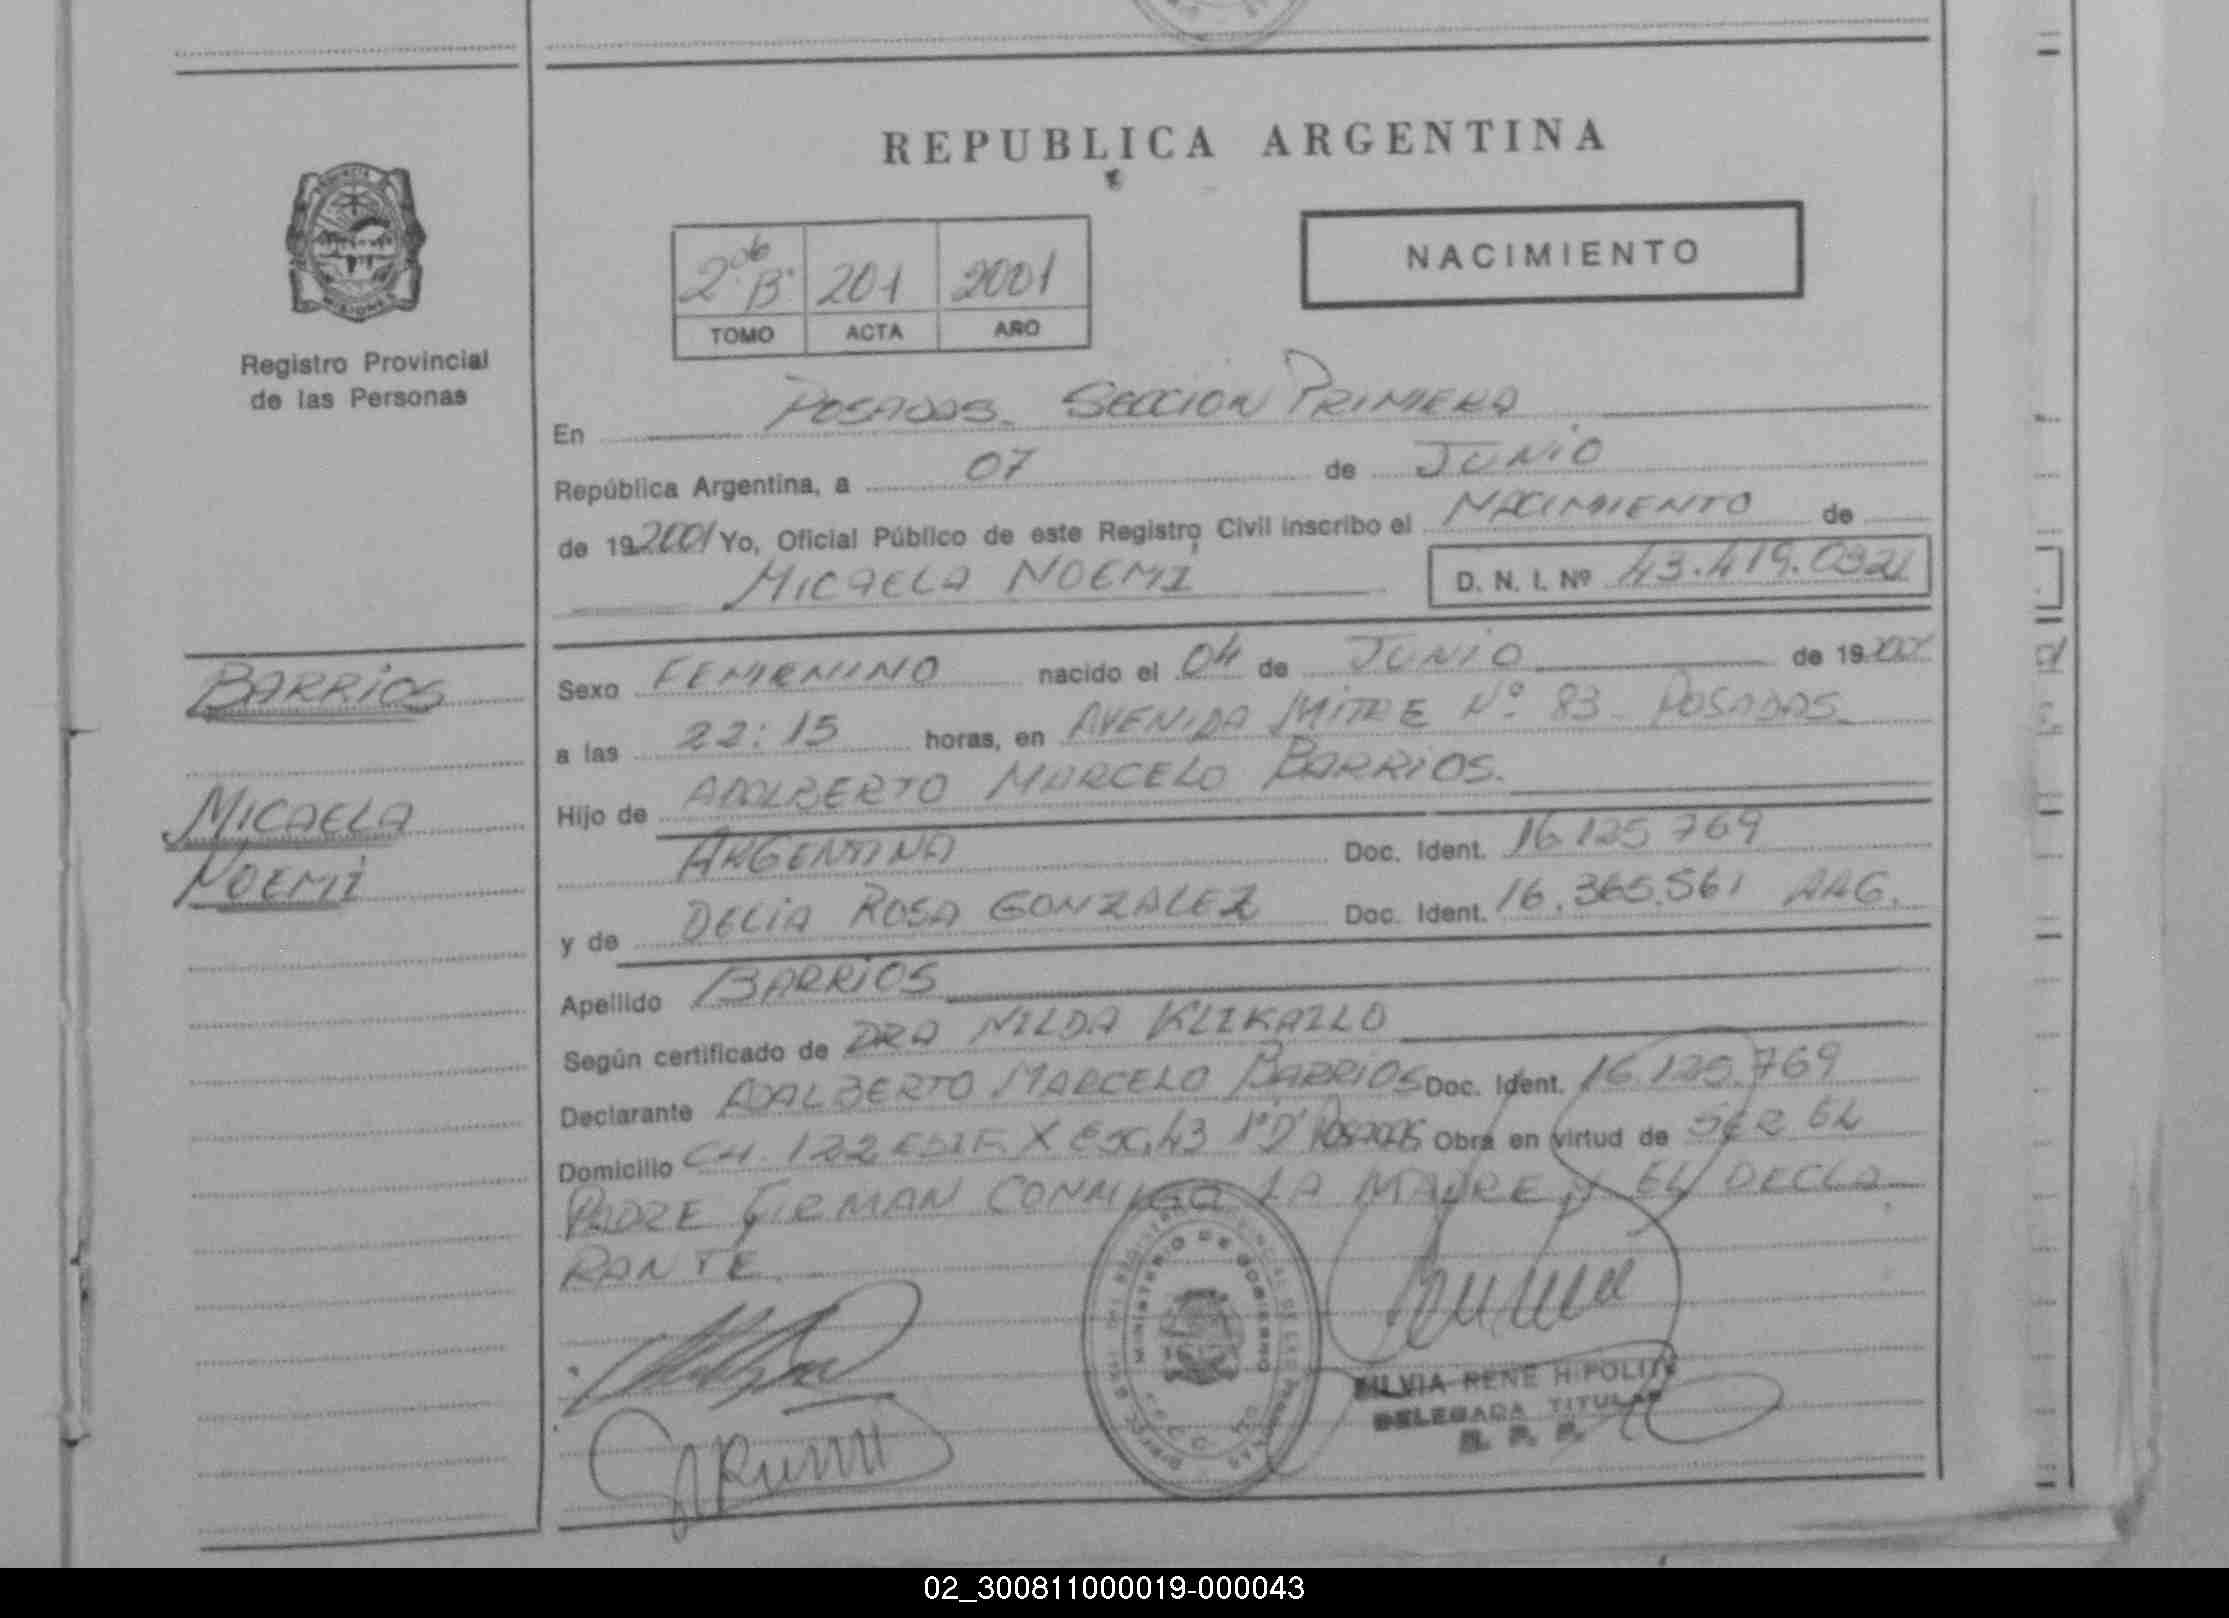 REPUBLICA ARGENTINA
NACIMIENTO
2º B 201 2001
TOMO ACTA AÑO
Registro Provincial
de las Personas
En POSADAS. SECCION PRIMERA
República Argentina, a 07 de JUNIO
de 192001 Yo, Oficial Público de este Registro Civil inscribo el NACIMIENTO de
MICAELA NOEMI D. N. I. Nº 43.419.032
BARRIOS
MICAELA
NOEMI
Sexo FEMENINO nacido el 04 de JUNIO de 19
a las 22:15 horas, en AVENIDA MITRE Nº 83 POSADAS
Hijo de ADALBERTO MARCELO BARRIOS.
ARGENTINA Doc. Ident. 16.125.769
y de DELIA ROSA GONZALEZ Doc. Ident. 16.365.561 ARG.
Apellido BARRIOS
Según certificado de DRA NILDA
Declarante ADALBERTO MARCELO BARRIOS Doc. Ident. 16.125.769
Domicilio CH. 122 EDIF. X ESC. 43 1º D POSADAS Obra en virtud de SER EL
PADRE FIRMAN CONMIGO LA MADRE Y EL DECLA
RANTE
MINISTERIO DE GOBIERNO
SILVIA RENE HIPOLITO
DELEGADA TITULAR
R. P. P.
02_300811000019-000043